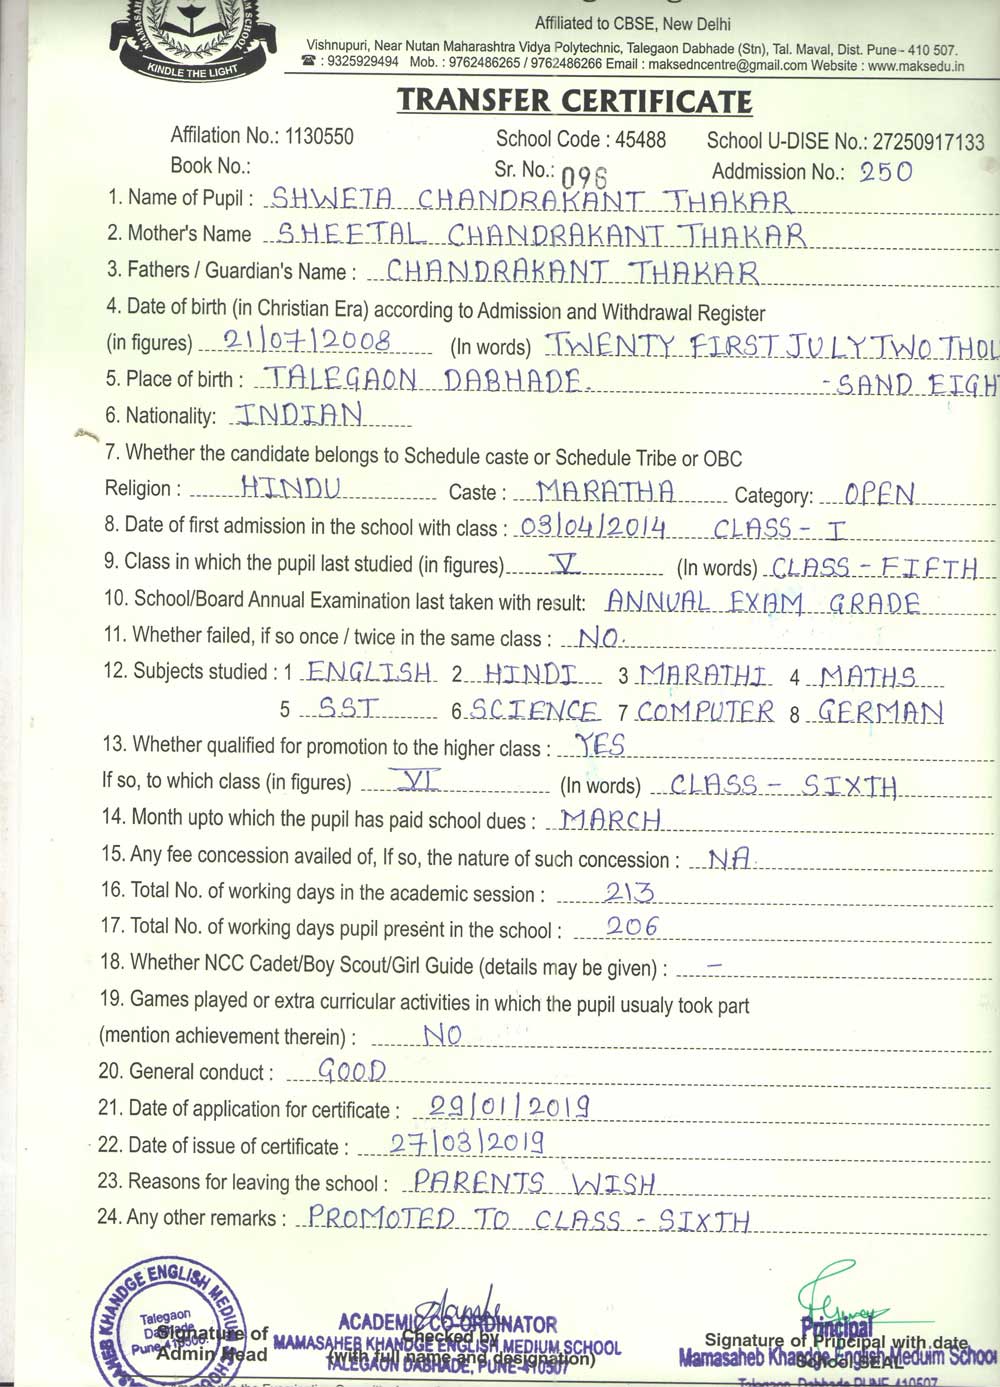 KINDLE THE LIGHT
Affiliated to CBSE, New Delhi
Vishnupuri, Near Nutan Maharashtra Vidya Polytechnic, Talegaon Dabhade (Stn), Tal. Maval, Dist. Pune - 410 507.
☎ : 9325929494 Mob. : 9762486265 / 9762486266 Email : maksedncentre@gmail.com Website : www.maksedu.in
TRANSFER CERTIFICATE
Affilation No.: 1130550 School Code : 45488 School U-DISE No.: 27250917133
Book No.: Sr. No.: 096 Addmission No.: 250
1. Name of Pupil : SHWETA CHANDRAKANT THAKAR
2. Mother's Name SHEETAL CHANDRAKANT THAKAR
3. Fathers / Guardian's Name : CHANDRAKANT THAKAR
4. Date of birth (in Christian Era) according to Admission and Withdrawal Register
(in figures) 21/07/2008 (In words) TWENTY FIRST JULY TWO THOU
5. Place of birth : TALEGAON DABHADE. -SAND EIGH
6. Nationality: INDIAN
7. Whether the candidate belongs to Schedule caste or Schedule Tribe or OBC
Religion : HINDU Caste : MARATHA Category: OPEN
8. Date of first admission in the school with class : 03/04/2014 CLASS - I
9. Class in which the pupil last studied (in figures) V (In words) CLASS - FIFTH
10. School/Board Annual Examination last taken with result: ANNUAL EXAM GRADE
11. Whether failed, if so once / twice in the same class : NO.
12. Subjects studied : 1 ENGLISH 2 HINDI 3 MARATHI 4 MATHS
5 SST 6 SCIENCE 7 COMPUTER 8 GERMAN
13. Whether qualified for promotion to the higher class : YES
If so, to which class (in figures) VI (In words) CLASS - SIXTH
14. Month upto which the pupil has paid school dues : MARCH
15. Any fee concession availed of, If so, the nature of such concession : NA.
16. Total No. of working days in the academic session : 213
17. Total No. of working days pupil present in the school : 206
18. Whether NCC Cadet/Boy Scout/Girl Guide (details may be given) : -
19. Games played or extra curricular activities in which the pupil usualy took part
(mention achievement therein) : NO
20. General conduct : GOOD
21. Date of application for certificate : 29/01/2019
22. Date of issue of certificate : 27/03/2019
23. Reasons for leaving the school : PARENTS WISH
24. Any other remarks : PROMOTED TO CLASS - SIXTH
KHANDGE ENGLISH MEDIUM
Talegaon
Dabhade
Signature of
Admin Head
ACADEMIC CO-ORDINATOR
Checked by
MAMASAHEB KHANDGE ENGLISH MEDIUM SCHOOL
(with full name and designation)
TALEGAON DABHADE, PUNE-410507
Principal
Signature of Principal with date
Mamasaheb Khandge English Meduim School
School SEAL
Talegaon Dabhade PUNE 410507